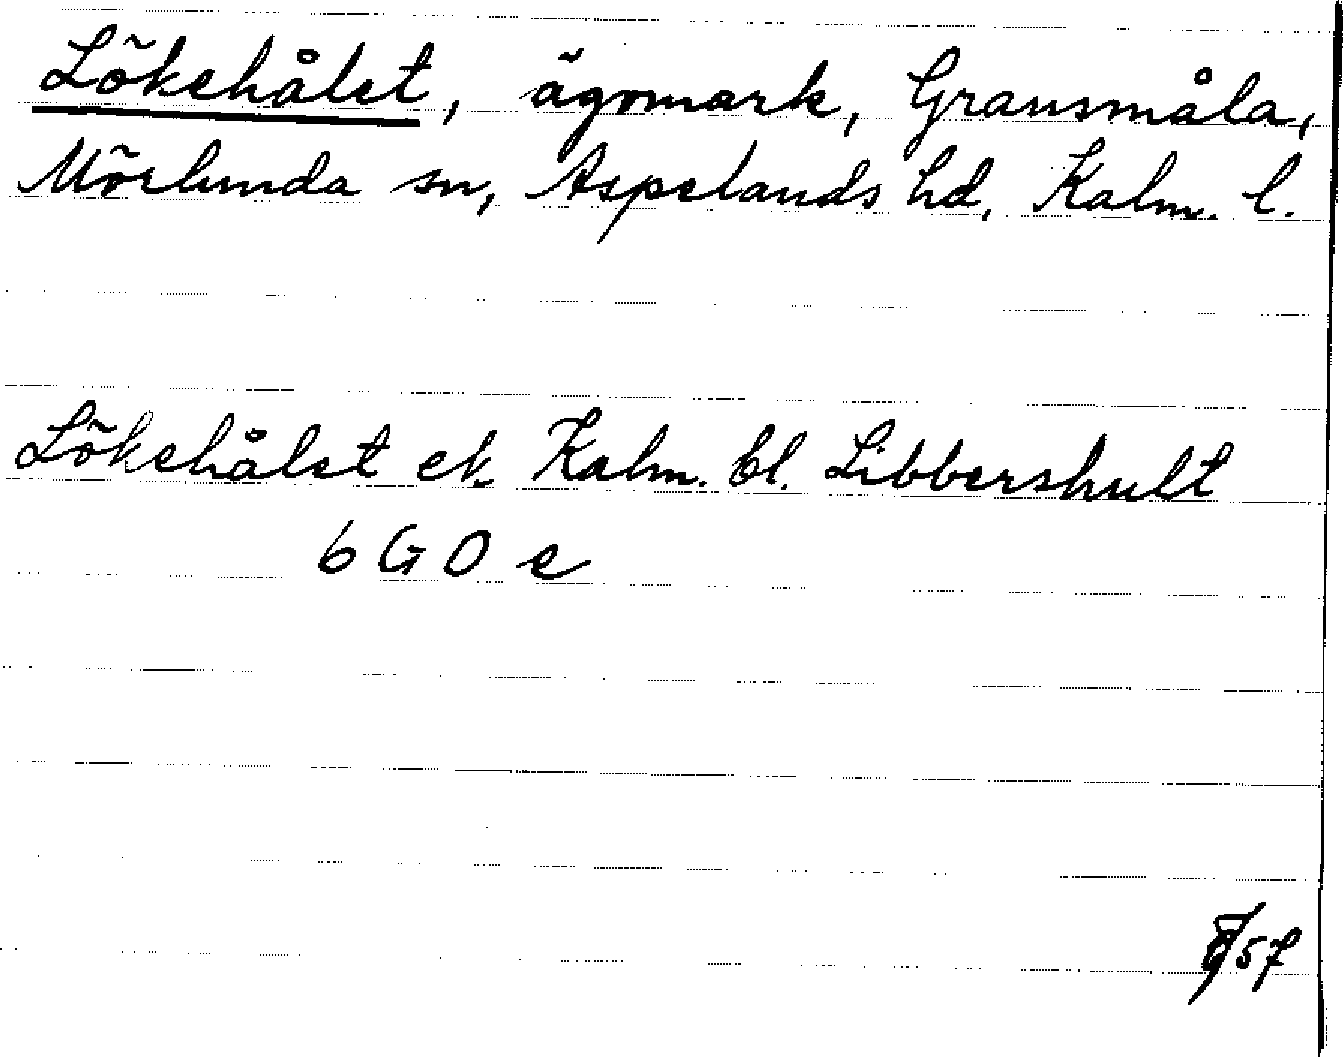 Lökehålet, ägomark, Gransmåla,
Mörlunda sn, Aspelands hd, Kalm. l.
Lökehålet ek Kalm. bl. Libbershult
6 G O e
57